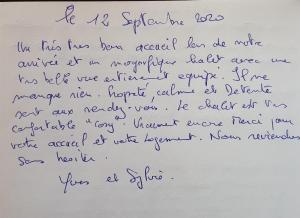 le 12 Septembre 2020
Un très très bon accueil lors de notre
arrivée et un magnifique chalet avec une
très belle vue entièrement equipé. Il ne
manque rien. Propreté, calme et Detente
sont aux rendez-vous. Le chalet est très
confortable "cosy". Vraiment encore Merci pour
votre accueil et votre logement. Nous reviendrons
sans hesiter.
Yves et Sylvie.